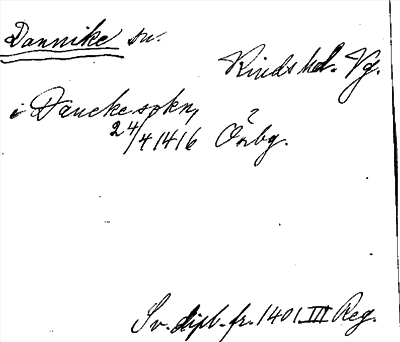 Dannike sn.
Kinds hd. Vg.
i Dænckesokn,
24/4 1416 Örbg.
Sv. dipl. fr. 1401 III Reg.